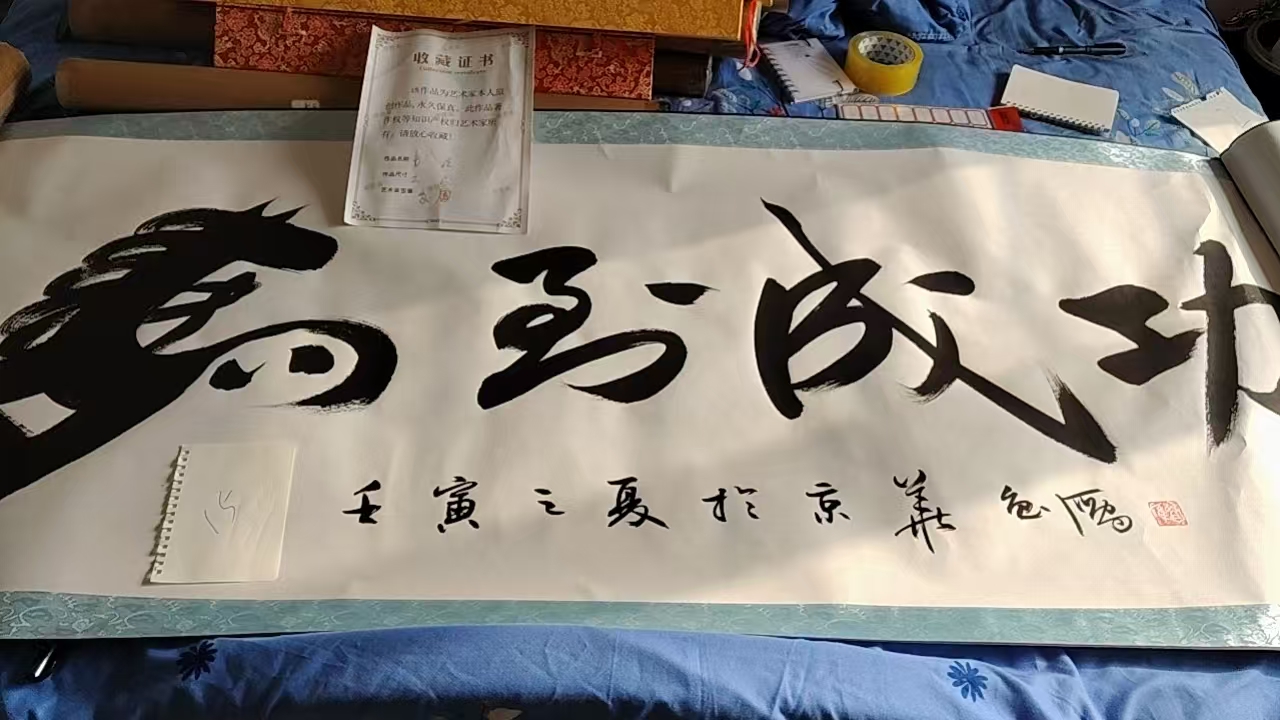 收藏证书
Collection certificate
该作品为艺术家本人原
创作品,永久保真。此作品著
作权等知识产权归艺术家所
有,请放心收藏!
作品名称
作品尺寸
艺术家签章
馬到成功
壬寅之夏於京華